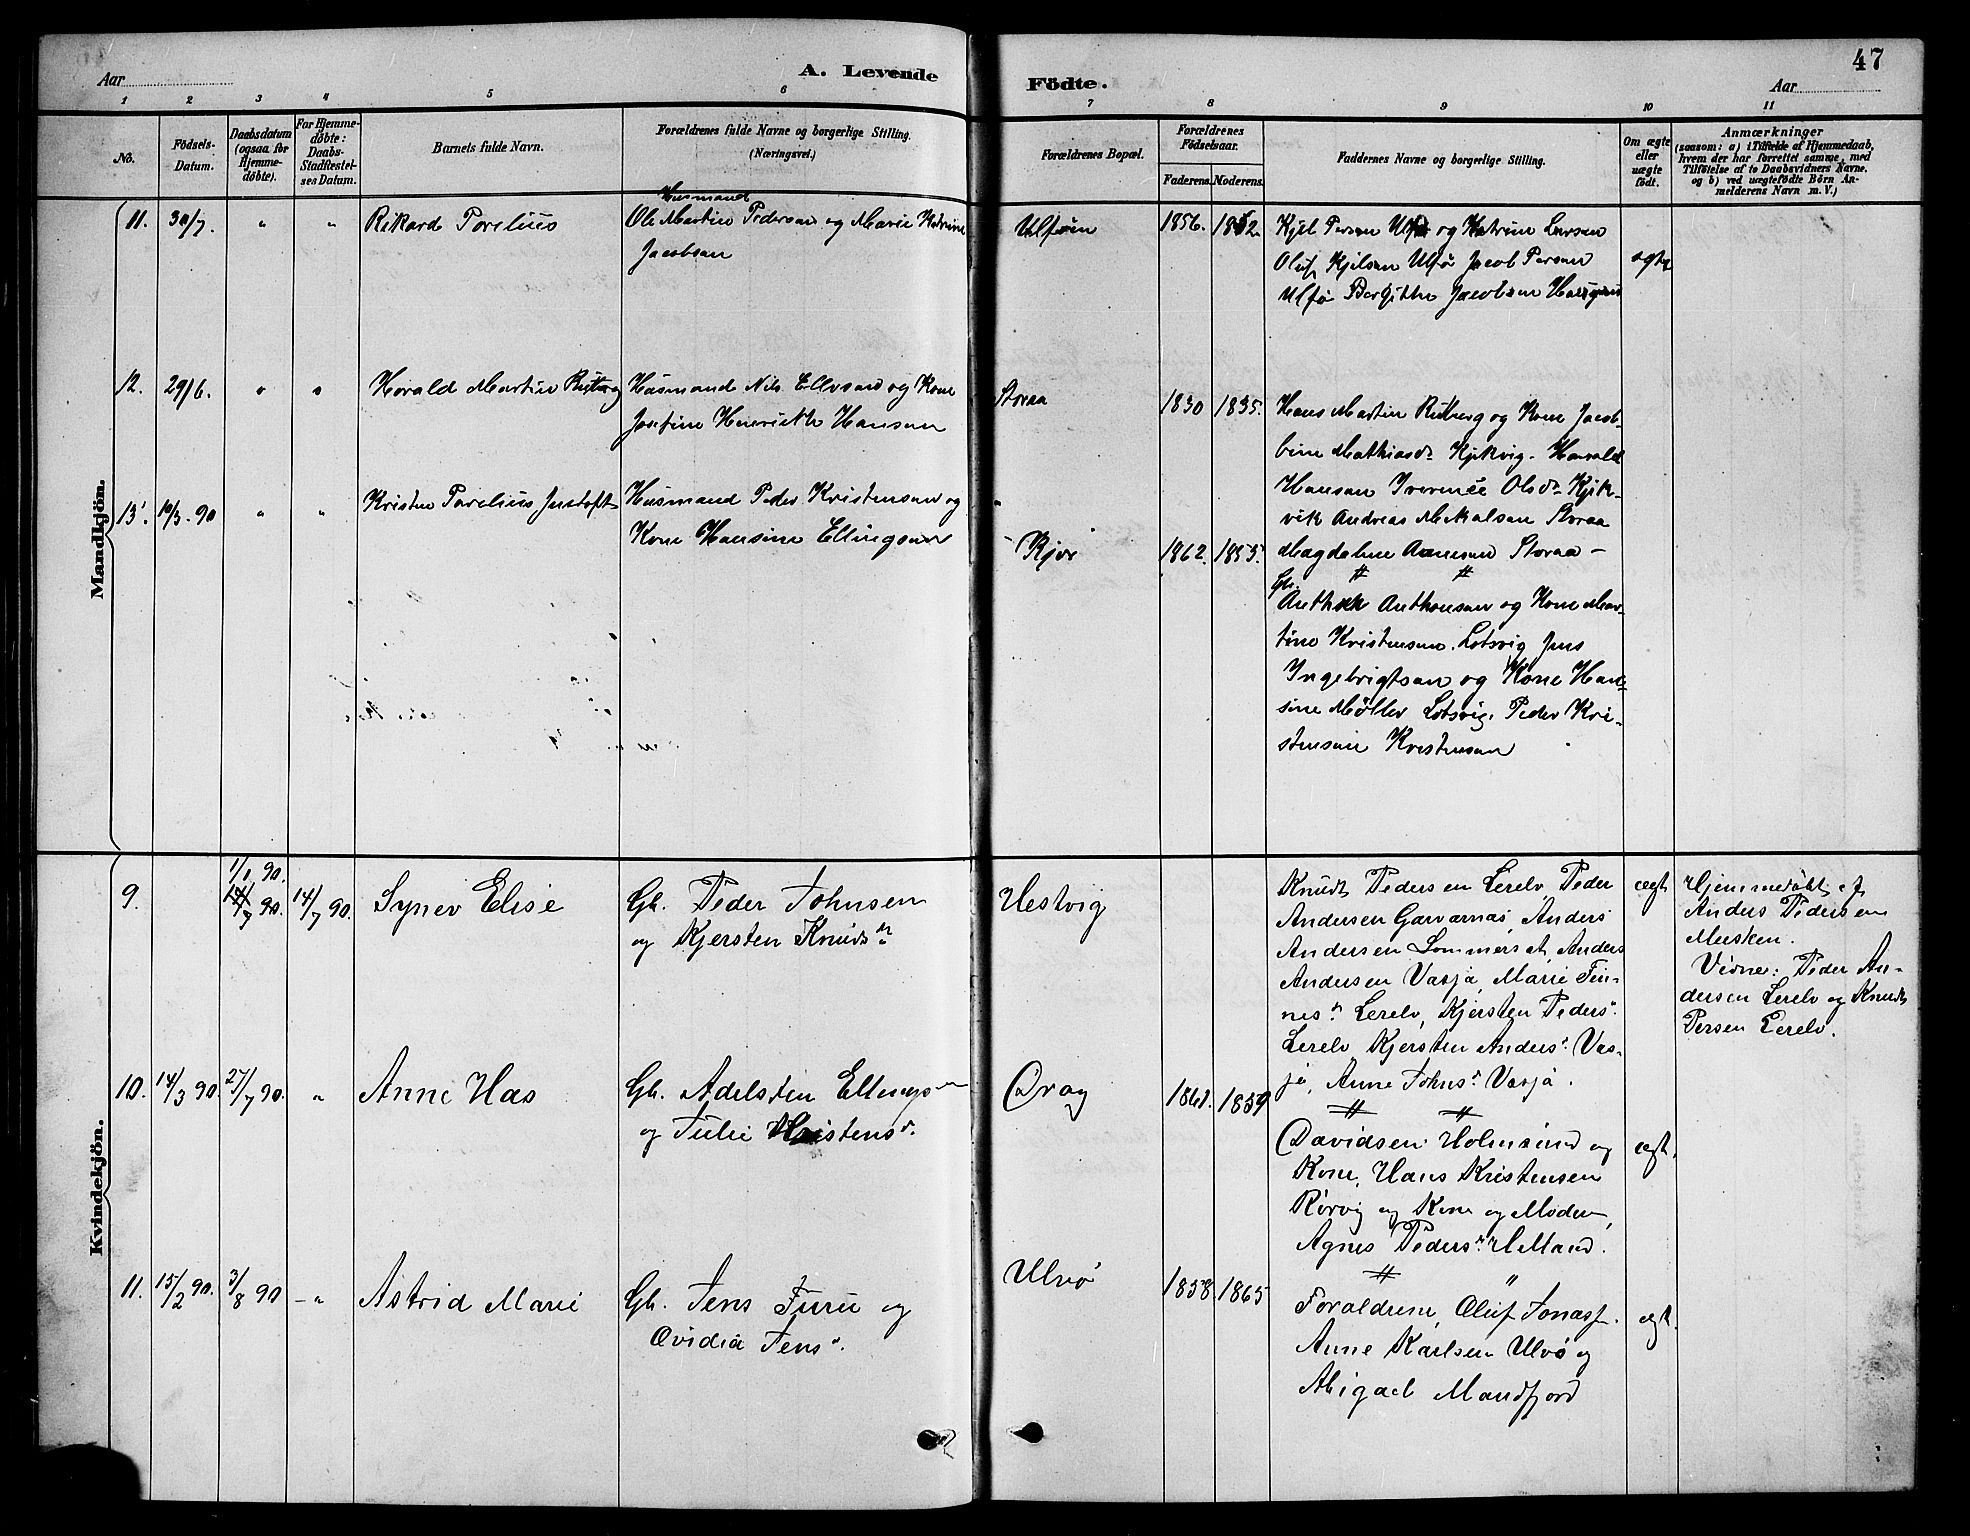 47
Aar
A. Levende
Födte.
Aar
1 2 3 4 5 6 7 8 9 10 11
No.
Födsels-
Datum.
Daabsdatum
(ogsaa for
Hjemme-
döbte).
For Hjemme-
döbte:
Daabs-
Stadfæstel-
ses Datum.
Barnets fulde Navn.
Forældrenes fulde Navne og borgerlige Stilling.
(Næringsvei.)
Forældrenes Bopæl.
Forældrenes
Födselsaar.
Faderens.
Moderens.
Faddernes Navne og borgerlige Stilling.
Om ægte
eller
uægte
födt.
Anmærkninger
(saasom: a) i Tilfælde af Hjemmedaab,
hvem der har forrettet samme, med
Tilföielse af to Daabsvidners Navne,
og b) ved uægtefödte Börn An-
melderens Navn m. V.)
Mandkjön.
11. 30/7. " " Rikard Parelius
Husmand
Ole Martin Pedersen og Marie Katrine
Jacobsen
Ulföin
1856. 1852
Kjel Persen og Katrine Larsen
Oluf Kjelsen Ulfö Jacob Persen
Ulfö Bergitte Jacobsen
ægte
12. 29/6. " " Harald Martin Ritberg
Husmand Nils Ellevsen og Kone
Josefine Henrikke Hansen
Storaa
1830 1835.
Hans Martin Ritberg og Kone Jacob-
bine Mathiasdr Kjikvig. Harald
Hansen Ols dr Kjik-
vik Andreas Mikalsen Storaa
Magdalene Arnesen Storaa -
13. 10/3. 90 " " Kristen Parelius Justoft
Husmand Peder Kristensen og
Kone Hansine Ellingsen
Kjör
1862. 1855.
Gb.
Anthon Anthonsen og Kone Mar-
tine Kristensen. Lotsvig Jens
Ingebrigtsen og Kone Han-
sine Möller Lotsvig. Peder Kri-
stensen Kristensen
Kvindekjön.
9.
1/1 90.
14/7 90. 14/7 90. Synev Elise
Gb. Peder Johnsen
og Kjersten Knudsdr
Hestvig
Knudt Pedersen Lerelv Peder
Andersen Garvarnas, Anders
Andersen Sommerset, Anders
Andersen Vasja, Marie Fin-
nesdr Lerelv, Kjersten Peders.
Lerelv, Kjersten Anders. Vas-
ja, Anne Johnsdr Vasja.
ægt
Hjemmedöbt af
Anders Pedersen
Musken.
Vidne: Peder An-
dersen Lerelv og Knudt
Persen Lerelv.
10. 14/3 90. 27/7 90. " Anne Has
Gb. Adelsten Ellingsen
og Julie Kristens.
Drag
1861. 1859
Davidsen Holmsund og
Kone, Hans Kristensen
Rörvig og Kone og Moderen,
Agnes Peders. Helland.
ægt.
11. 15/2 90. 3/8 90 - " Astrid Marie
Gb. Jens Furu og
Ovidia Jens.
Ulvö
1858. 1865
Foraldrene, Oluf Jonass.
Anne Karlsen Ulvö og
Abigael Mandfjord
ægt.